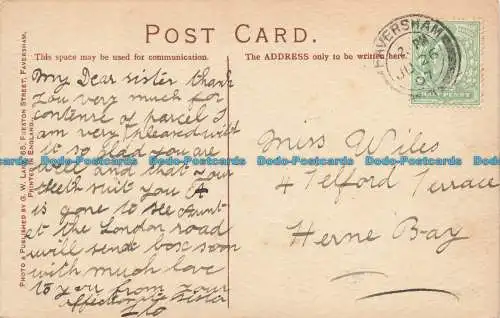 POST CARD.
This space may be used for communication.
The ADDRESS only to be written here.
PHOTO & PUBLISHED BY G. W. 66, PRESTON STREET, FAVERSHAM.
PRINTED IN ENGLAND.
My Dear sister thank
you very much for
contense of parcel I
am very pleased with
it so glad you are
well and that your
teeth suit you
is gone to see Aunt
at the London road
will send box soon
with much love
to you from your
affectionate sister
Miss Wiles
4 Telford Terrace
Herne Bay
FAVERSHAM
JU 26
07
HALF PENNY
Dodo-Postcards Dodo-Postcards Dodo-Postcards Dodo-Postcards